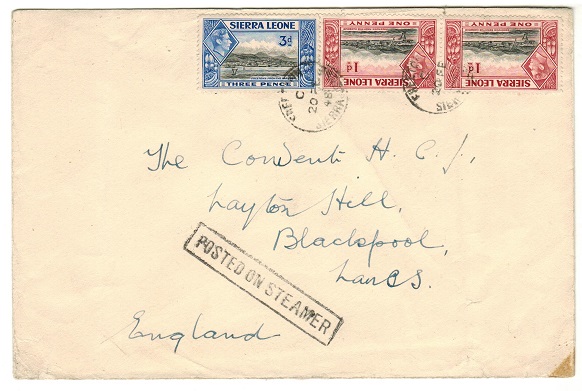 SIERRA LEONE
3d
THREE PENCE
ONE PENNY
1d
SIERRA LEONE
ONE PENNY
1d
SIERRA LEONE
20
20
The Convent H. C. J.,
Layton Hill,
Blackpool,
Lancs.
POSTED ON STEAMER
England